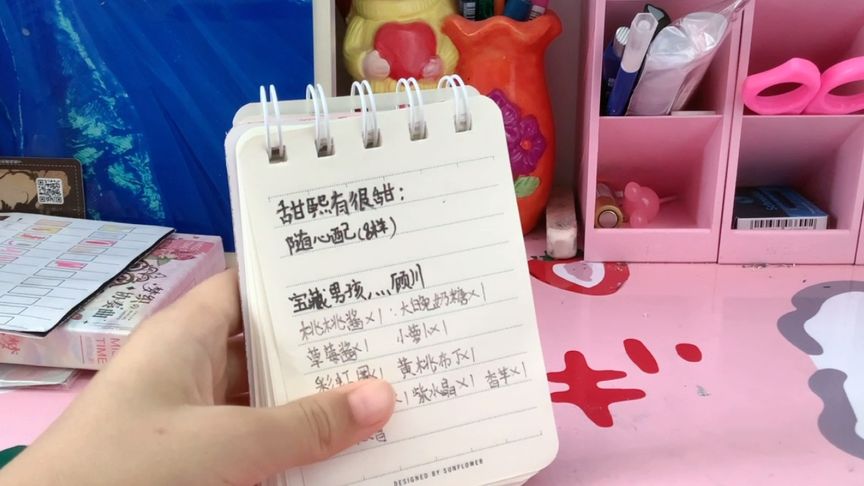 甜熙有很甜：
随心配(8样)
宝藏男孩,,,,顾川
桃桃酱×1 大白兔奶糖×1
草莓酱×1 小萝卜×1
黄桃布丁×1
×1 紫水晶×1 香芋×1
DESIGNED BY SUNFLOWER